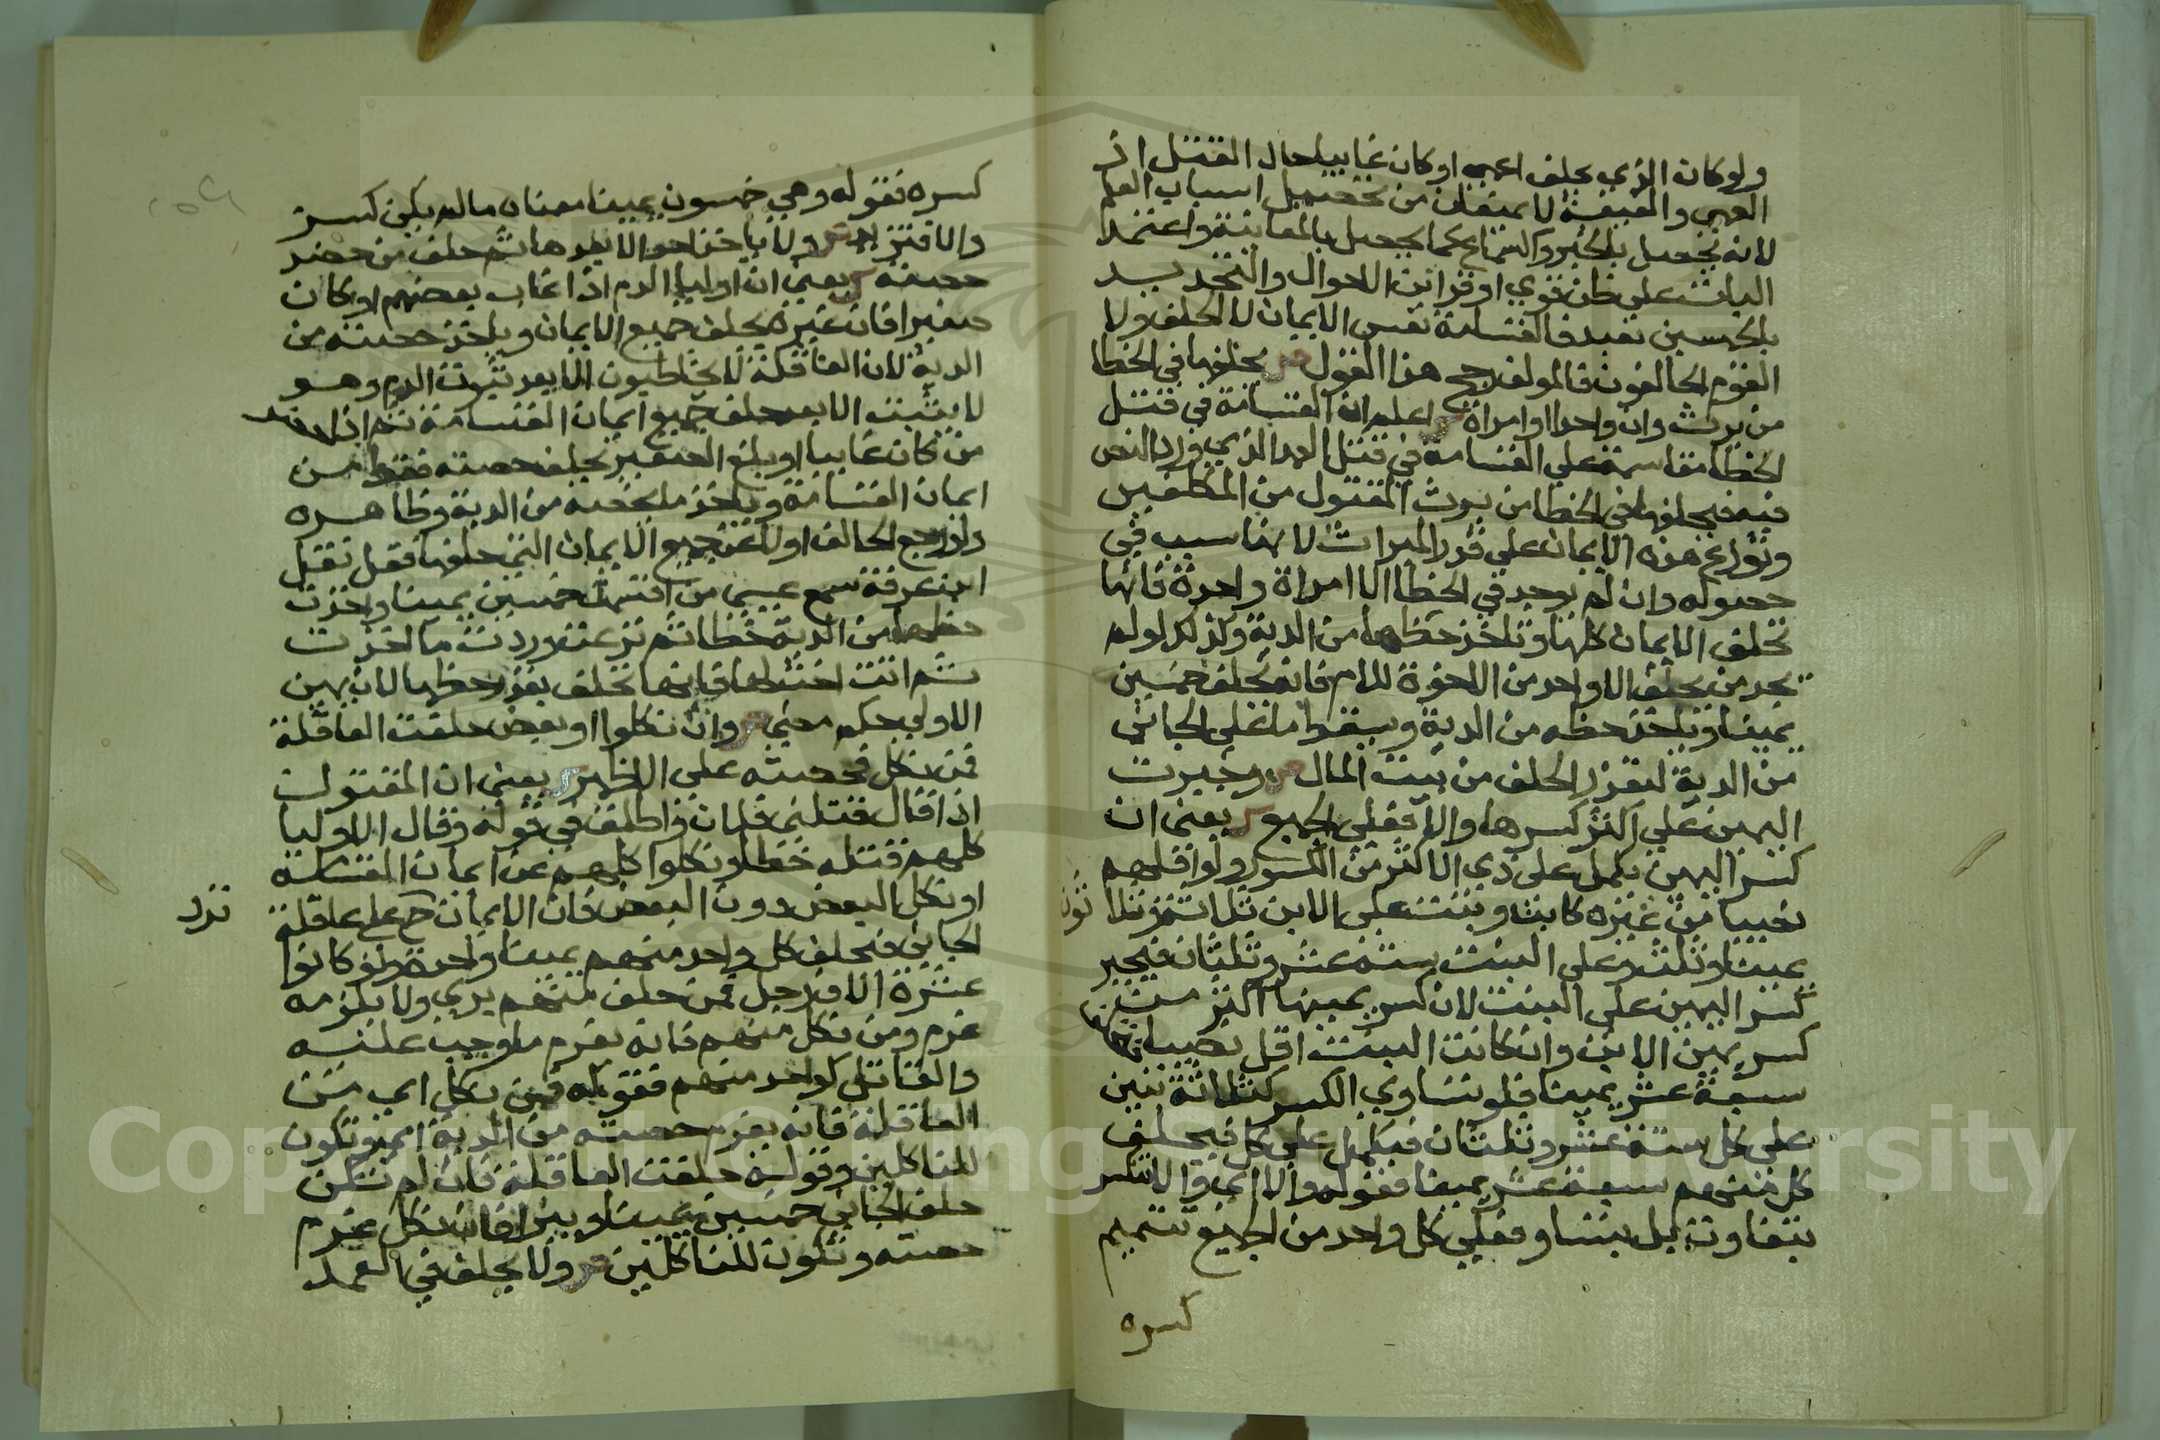 ولو كان الذي يحلف اعمى او كان غايبا حال القتل اذ
العمى والغيبة لا يمنعان من تحصيل اسباب العلم
لانه يحصل بالخبر والسماع كما يحصل بالمعاينة واعتمد
البات على ظن قوي او قراين الاحوال والتحديد
بالخمسين تعبد فالقسامة نفس الايمان لا الحلف ولا
القوم الحالفون فالمولف رجح هذا القول ص يحلفها في الخطا
من يرث وان واحدا او امراة ش اعلم ان القسامة في قتل
الخطا مقاسمة على القسامة في قتل العمد الذي ورد النص
فيه فيحلفها في الخطا من يرث المقتول من المكلفين
وتوزع هذه الايمان على قدر الميراث لانها سبب في
حصوله وان لم يوجد في الخطا الا امراة واحدة فانها
تحلف الايمان كلها وتاخذ حظها من الدية وكذلك لو لم
يجد من يحلف الا واحد من الاخوة للام فانه يحلف خمسين
يمينا وياخذ حظه من الدية ويسقط ما على الجاني
من الدية لتعذر الحلف من بيت المال ص وجبرت
اليمين على اكثر كسرها والا فعلى الجميع ش يعني ان
كسر اليمين يكمل على ذي الاكثر من الكسور ولو اقلهم
نصيبا من غيره كابن وبنت على الابن ثلاثة وثلاثون
يمينا وثلث وعلى البنت ستة عشر وثلثان فيجبر
كسر اليمين على البنت لان كسر يمينها اكثر من
كسر يمين الابن وان كانت البنت اقل نصيبا
سبعة عشر يمينا فلو تساوي الكسر كثلاثة بنين
على كل ستة عشر وثلثان فيكمل على كل فيحلف
كل منهم سبعة عشر يمينا فقوله والا اي والا تنكسر
بتفاوت بل بتساو فعلى كل واحد من الجميع تتميم
كسره
كسره فقوله وهي خمسون يمينا معناه ما لم يكن كسر
والا فتزيد ص ولا ياخذ احد الا بعدها ثم حلف من حضر
حصته ش يعني ان اوليا الدم اذا غاب بعضهم او كان
صغيرا فان غيره يحلف جميع الايمان وياخذ حصته من
الدية لان العاقلة لا يخاطبون الا بعد ثبوت الدم وهو
لا يثبت الا بعد حلف جميع ايمان القسامة ثم اذا قدم
من كان غايبا او بلغ الصغير يحلف حصته فقط من
ايمان القسامة وياخذ ما يخصه من الدية وظاهره
ولو رجع الحالف اولا عن جميع الايمان التي حلفها فقد نقل
ابن عرفة سمع عيسى من اقسمت خمسين يمينا واخذت
حظها من الدية خطا ثم نزعت وردت ما اخذت
ثم اتت اختها فانها تحلف بقدر حظها لان يمين
الاولى حكم مضى ص وان نكلوا او بعض حلفت العاقلة
فمن نكل فحصته على الاظهر ش يعني ان المقتول
اذا قال قتلني فلان واطلق في قوله وقال الاوليا
كلهم قتله خطا ونكلوا كلهم عن ايمان القسامة
او نكل البعض دون البعض فان الايمان ح على عاقلة
ترد
الجاني فيحلف كل واحد منهم يمينا واحدة ولو كانوا
عشرة الاف رجل فمن حلف منهم بري ولا يلزمه
غرم ومن نكل منهم فانه يغرم ما وجب عليه
والقاتل كواحد منهم فقوله فمن نكل اي من
العاقلة فانه يغرم حصته من الدية وتكون
للناكلين وقوله حلفت العاقلة فان لم تكن
حلف الجاني خمسين يمينا وبري فان نكل غرم
حصته وتكون للناكلين ص ولا يحلف في العمد
Copyright © King Saud University